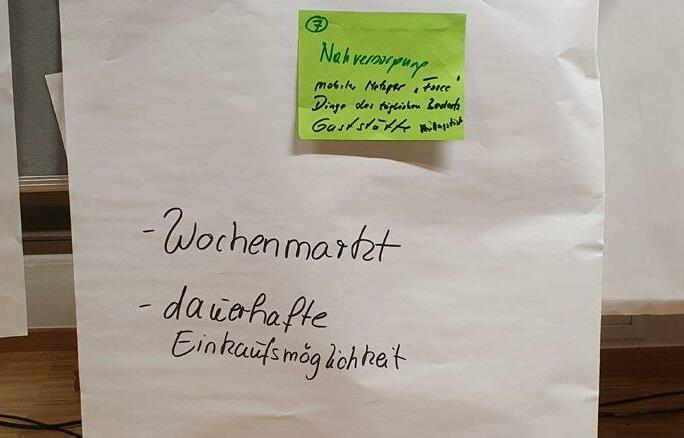 7
Nahversorgung
mobiler Metzger,
Dinge des täglichen Bedarfs
Gaststätte Mittagstisch
- Wochenmarkt
- dauerhafte
Einkaufsmöglichkeit